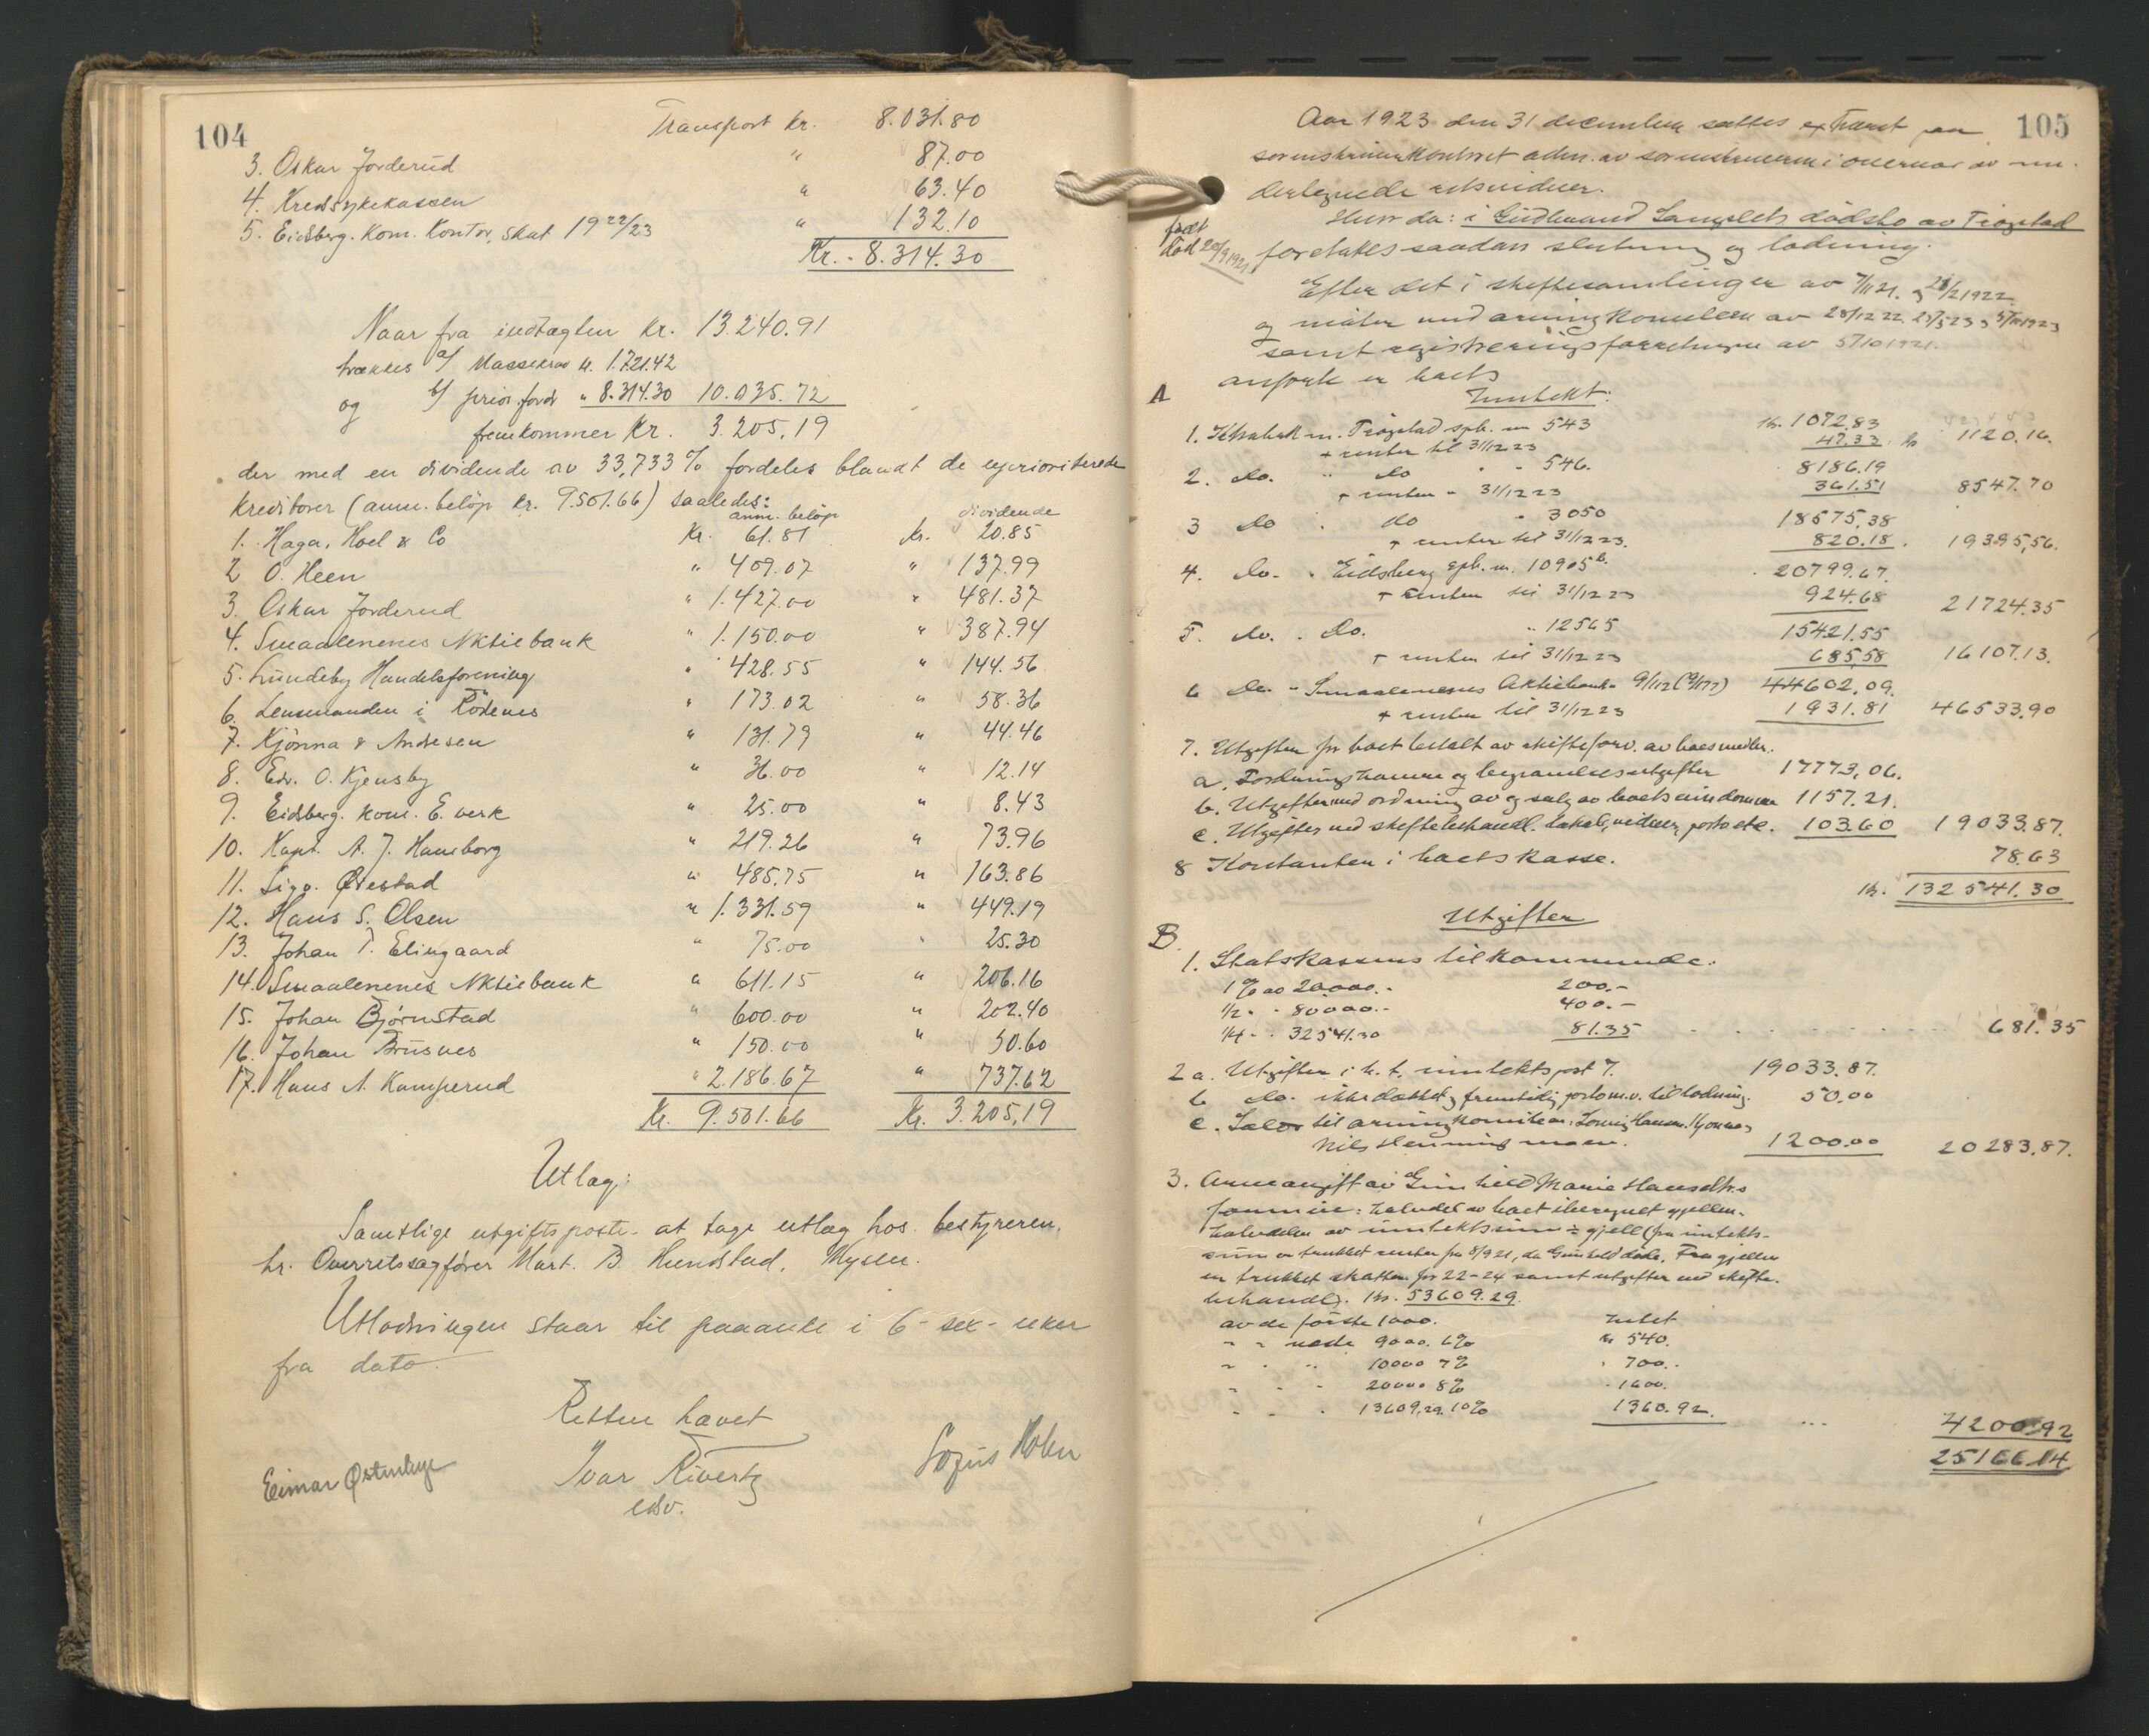 104
Transport Kr. 8.031.80
3. Oskar Jorderud " 87.00
4. Kredssykekassen " 63.40
5. Eidsberg. Kom. Kontor, skat 19 22/23 " 132.10
Kr. - 8.314.30
Naar fra indtægten kr. 13.240.91
trækkes a/ Massekrav kr. 1.721.42
og b/ prior. fordr " 8.314.30 10.035.72
fremkommer Kr. 3.205,19
der med en dividende av 33,733 % fordeles blandt de uprioriterede
kreditorer (anm. beløp kr. 9.501.66) saaledes:
anm. beløp dividende
1. Haga, Hoel & Co Kr. 61.81 Kr. 20.85
2 O. Heen " 409.07 " 137.99
3. Oskar Jorderud " 1.427.00 " 481.37
4. Smaalenenes Aktiebank " 1.150.00 " 387.94
5. Lundeby Handelsforening " 428.55 " 144.56
6. Lensmanden i Rödenes " 173.02 " 58.36
7. Kjönna & Andresen " 131.79 " 44.46
8. Edv. O. Kjensby " 36.00 " 12.14
9. Eidsberg. kom. E. verk " 25.00 " 8.43
10. Kapt. A. J. Haneborg " 219.26 " 73.96
11. Sigv. Ørestad " 485,75 " 163.86
12. Hans S. Olsen " 1.331.59 " 449.19
13. Johan T. Elingaard " 75.00 " 25.30
14. Smaalenenes Aktiebank " 611.15 " 206.16
15. Johan Bjørnstad " 600.00 " 202.40
16. Johan Brusnes " 150.00 " 50.60
17. Hans A. Kamperud " 2.186.67 " 737.62
Kr. 9.501.66 Kr. 3.205,19
Utlæg:
Samtlige utgiftsposter at tage utlæg hos bestyreren,
hr. Overretssagfører Mart. B. Hundstad, Mysen.
Utlodningen staar til paaanke i 6 - sex - uker
fra dato.
Retten hævet
Eimar Østenbye Ivar Rivertz Sozius Holm
edsv.
105
Aar 1923 den 31 december sattes extraret paa
sorenskriverkontoret adm. av sorenskriveren i overvær av un-
dertegnede retsvidner.
Hvor da: i Gudbrand Langslets dödsbo av Trögstad
födt
död 20/9 1921
foretokes saadan slutning og lodning.
Efter det i skiftesamlinger av 7/11 21. og 28/2 1922
og möter med arvingkomiteen av 28/12 22. 25/5 23 og 5/11 1923
samt registreringsforretningen av 5/10 1921.
anförte er boets
A Inntekt:
1. Kontrabok m. Trögstad spb. nr 543 kr. 1072.83
+ renter til 31/12 23 47.33 kr 1120.16.
2. do. " do " " 546. 8186.19
+ renter " 31/12 23 361.51 8547.70
3 do " do " 3050 18575,38
+ renter til 31/12 23. 820.18. 19395,56.
4. do. " Eidsberg spb. nr. 10905 b. 20799.67.
+ renter til 31/12 23 924.68 21724.35
5. do. " do. " 12565 15421.55
+ renter til 31/12 23 685,58 16107.13.
6 do. " Smaalenenes Aktiebank 9/112 (9/177) 44602.09.
+ renter til 31/12 23 1931.81 46533.90
7. Utgifter for boet betalt av skifteforv. av boets midler.
a. Fordringshavere og begravelsesutgifter 17773,06.
b. Utgifter med ordning av og salg av boets eiendommer 1157.21.
c. Utgifter ved skiftebehandl. lokale, vidner, porto etc. 103.60 19033.87.
8 Kontanter i boets kasse. 78.63
kr. 132541.30
B. Utgifter
1. Statskassens tilkommende.
1% av 20.000.- 200.-
1/2 " " 80000.- 400.-
1/4 - " 32541.30 81.35 681.35
2 a. Utgifter i h. t. inntektspost 7. 19033.87.
b do. ikke dækket og fremtidig porto m.v. til lodning. 50.00
c. Salær til arvingkomiteen:
Nils Henning moen. 1200.00 20283.87.
3. Arveavgift av Gunhild Marie Hansdtrs
formue: halvdel av boet iberegnet gjelden.
Halvdelen av inntektssum ÷ gjeld (fra inntekts-
sum er trukket renter fra 8/9 21, da Gunhild döde. Fra gjelden
er trukket skatten for 22-24 samt utgifter ved skifte-
behandl). kr. 53609.29.
av de förste 1000. intet
" " neste 9000. 6% kr 540.
" " " 10000 7% " 700..
" " " 20000 8% " 1600.
" " " 13609.29. 10% 1360.92. ... 4200.92
25166.14